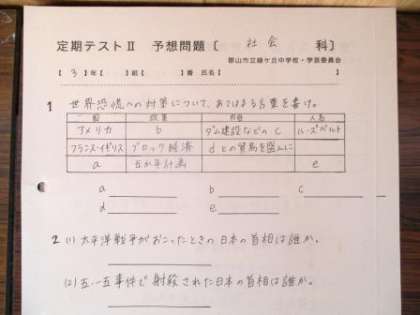 定期テストⅡ 予想問題〔 社会 科〕
郡山市立緑ケ丘中学校・学芸委員会
【 3 】年【 】組【 】番 氏名【 】
1 世界恐慌への対策について、あてはまる言葉を書け。
国 政策 内容 人名
アメリカ b ダム建設などの c ルーズベルト
フランス・イギリス ブロック経済 d との貿易を盛んに
a 五か年計画 e
a b c
d e
2 (1) 太平洋戦争がおこったときの日本の首相は誰か。
(2) 五・一五事件で射殺された日本の首相は誰か。